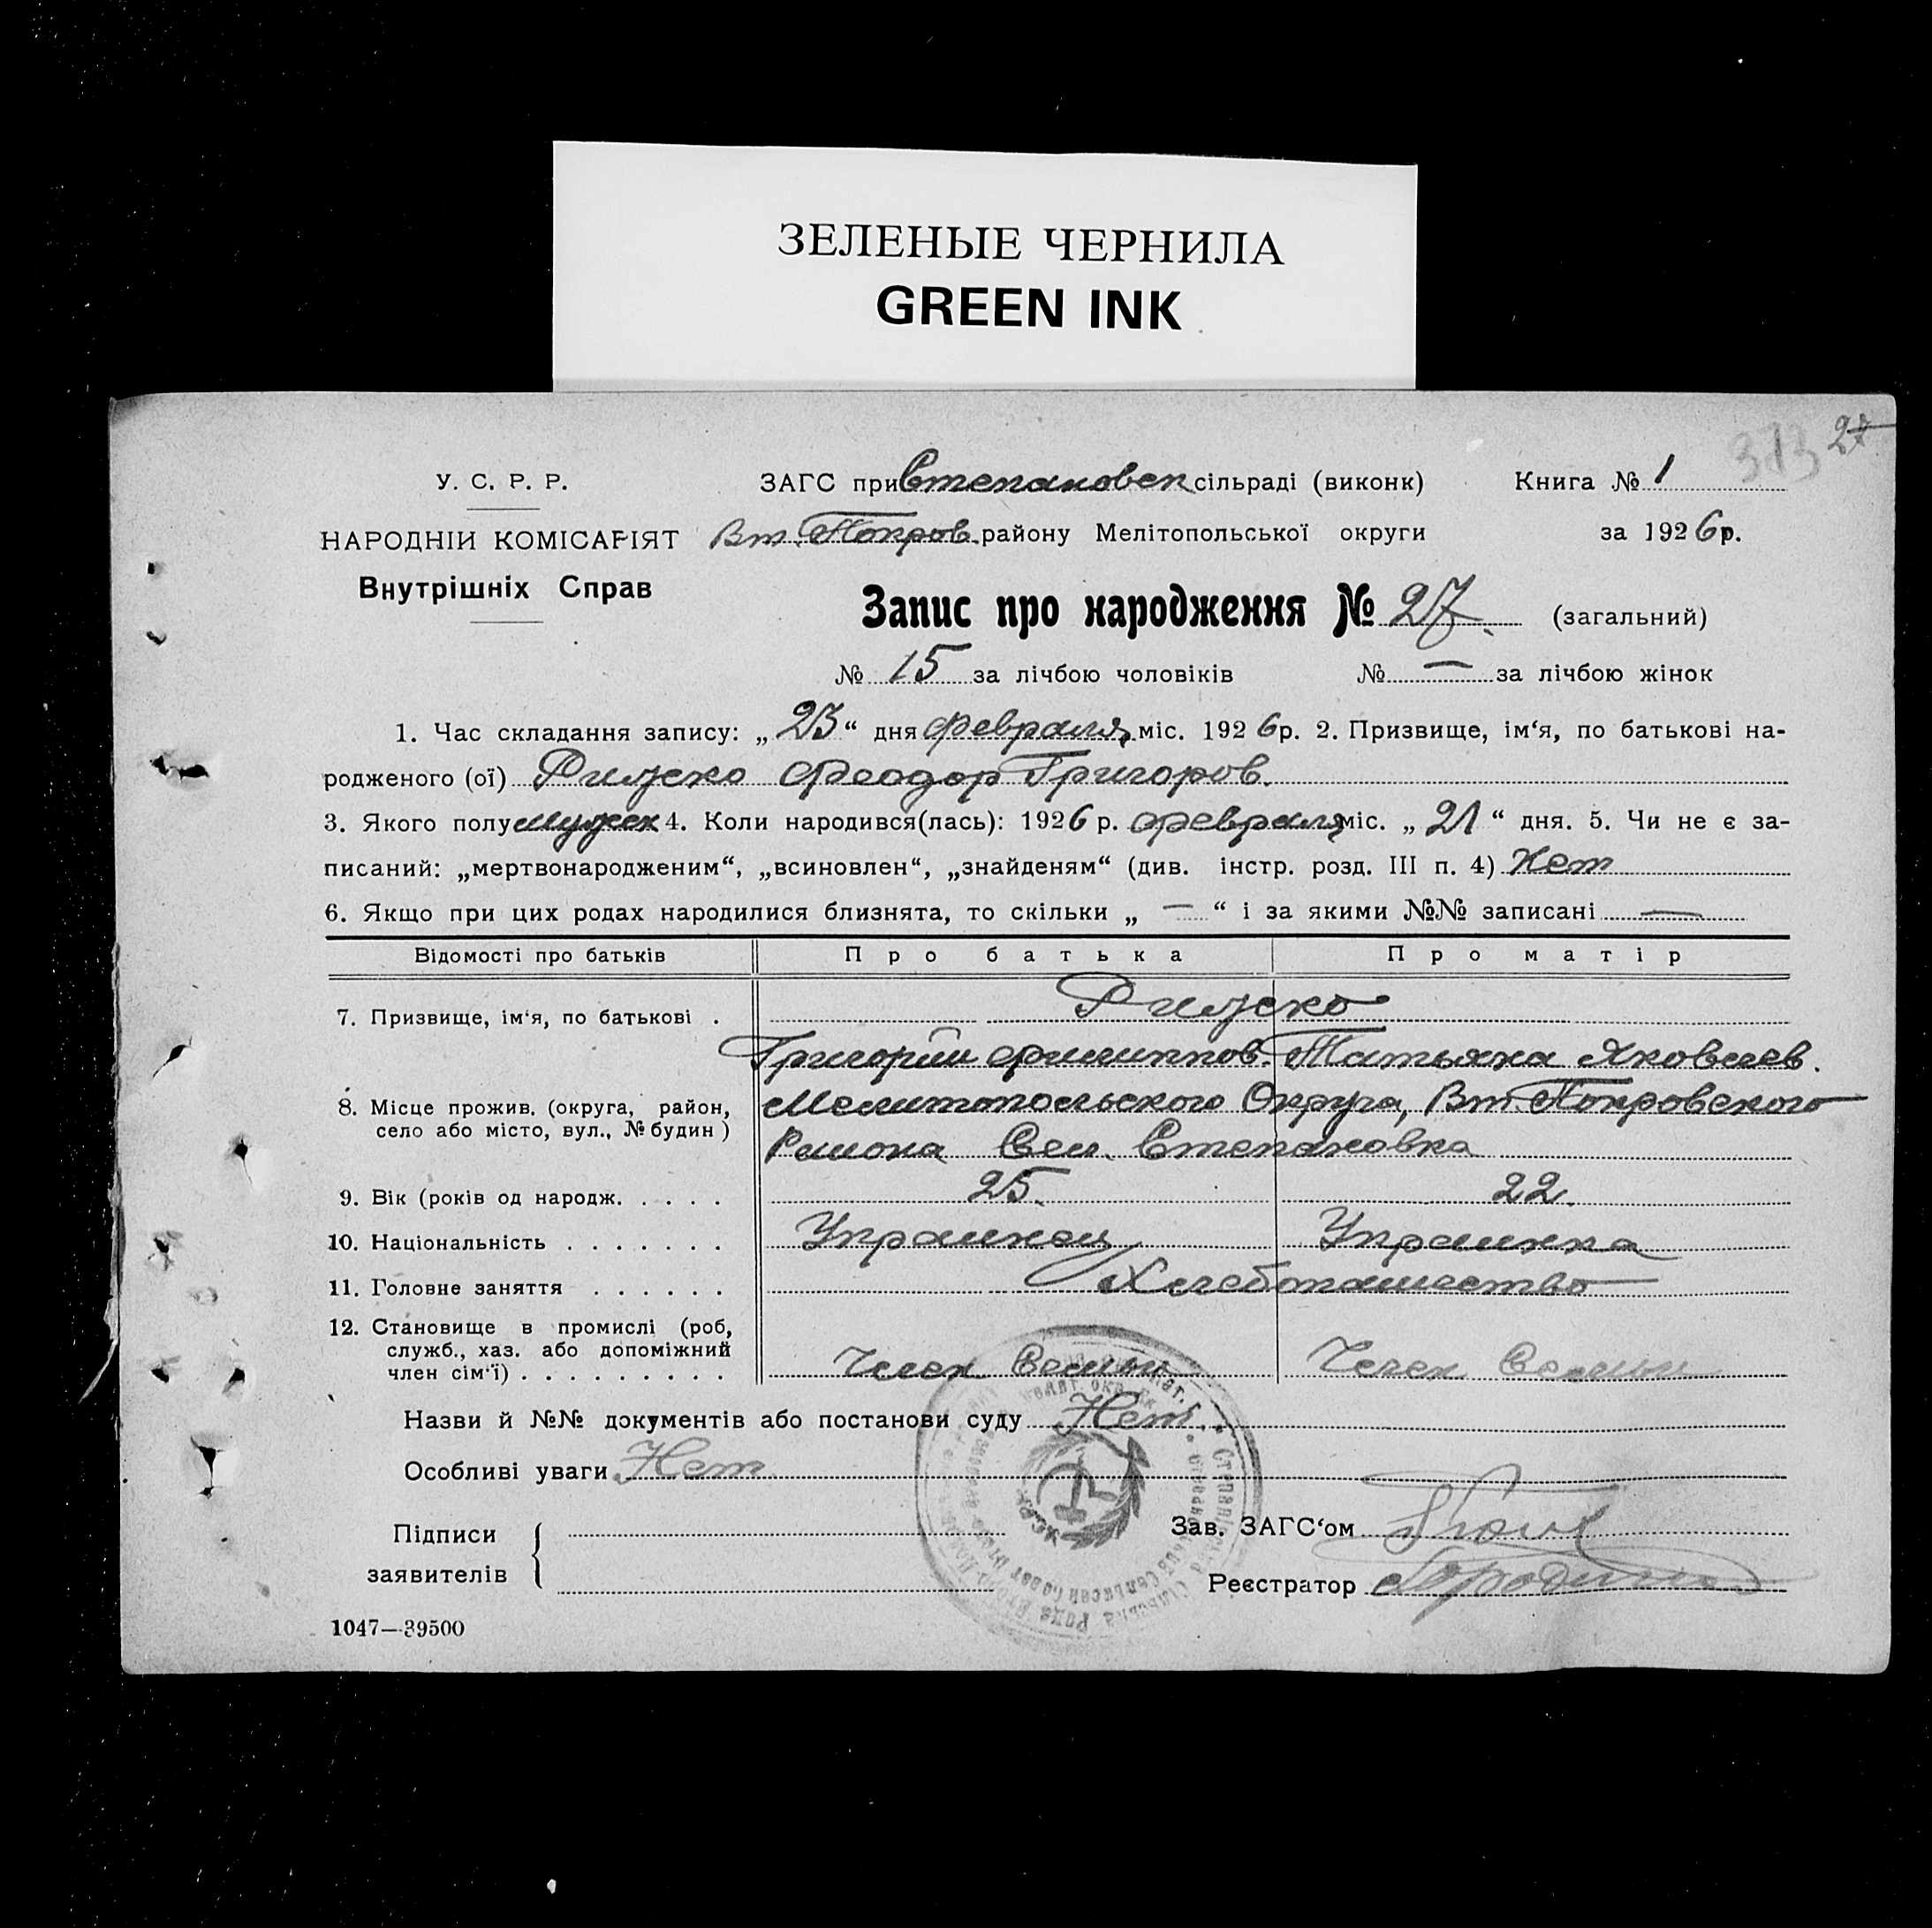 ЗЕЛЕНЫЕ ЧЕРНИЛА
GREEN INK
313 27
У. С. Р. Р.
НАРОДНІЙ КОМІСАРІЯТ
Внутрішніх Справ
ЗАГС при Степановск сільраді (виконк) Книга № 1
Вт. Покров. району Мелітопольської округи за 1926 р.
Запис про народження № 27. (загальний)
№ 15 за лічбою чоловіків № — за лічбою жінок
1. Час складання запису: „23“ дня февраля міс. 1926 р. 2. Призвище, ім‘я, по батькові на-
родженого (ої) Рижско Феодор Григоров.
3. Якого полу мужск 4. Коли народився(лась): 1926 р. февраля міс. „21“ дня. 5. Чи не є за-
писаний: „мертвонародженим“, „всиновлен“, „знайденям“ (див. інстр. розд. III п. 4) Нет
6. Якщо при цих родах народилися близнята, то скільки „ — “ і за якими №№ записані —
Відомості про батьків Про батька Про матір
7. Призвище, ім‘я, по батькові . Рижско
Григорий Филиппов. Татьяна Яковлев.
8. Місце прожив. (округа, район,
село або місто, вул., № будин)
Мелитопольского Округа, Вт. Покровского
Раиона Сел. Степановка
9. Вік (років од народж. . . . . 25. 22.
10. Національність . . . . . . . Украинец Украинка
11. Головне заняття . . . . . . Хлебопашество
12. Становище в промислі (роб,
служб., хаз. або допоміжний
член сім‘ї) . . . . . . . . . Член Семьи Член Семьи
Назви й №№ документів або постанови суду Нет
Особливі уваги Нет
Підписи
заявителів
Зав. ЗАГС‘ом
Реєстратор
1047—39500